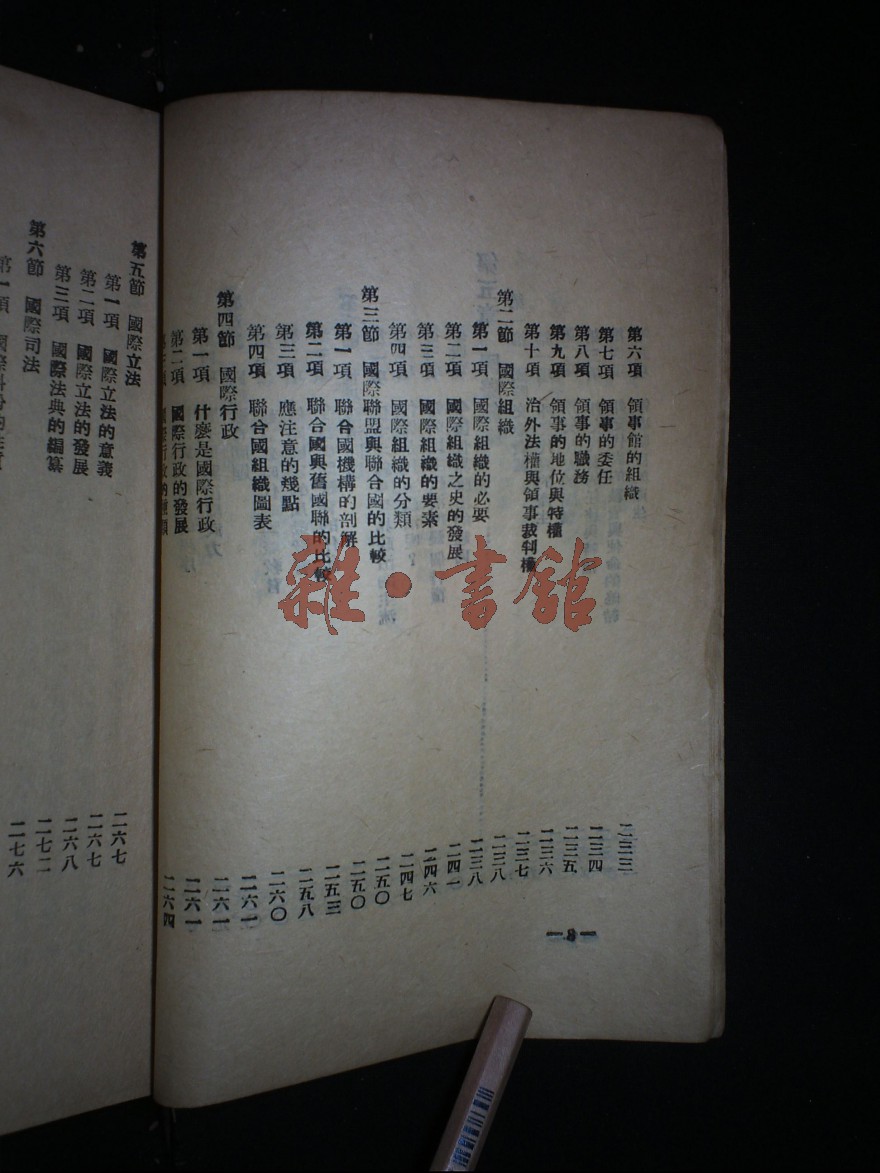 第六項 領事館的組織 二三三
第七項 領事的委任 二三四
第八項 領事的職務 二三五
第九項 領事的地位與特權 二三六
第十項 治外法權與領事裁判權 二三七
第二節 國際組織 二三八
第一項 國際組織的必要 二三八
第二項 國際組織之史的發展 二四一
第三項 國際組織的要素 二四六
第四項 國際組織的分類 二四七
第三節 國際聯盟與聯合國的比較 二五〇
第一項 聯合國機構的剖解 二五〇
第二項 聯合國與舊國聯的比較 二五三
第三項 應注意的幾點 二五八
第四項 聯合國組織圖表 二六〇
第四節 國際行政 二六一
第一項 什麼是國際行政 二六一
第二項 國際行政的發展 二六一
國際行政的種類 二六四
—8—
第五節 國際立法 二六七
第一項 國際立法的意義 二六七
第二項 國際立法的發展 二六八
第三項 國際法典的編纂 二七二
第六節 國際司法 二七六
第一項 國際糾紛的
雜·書館